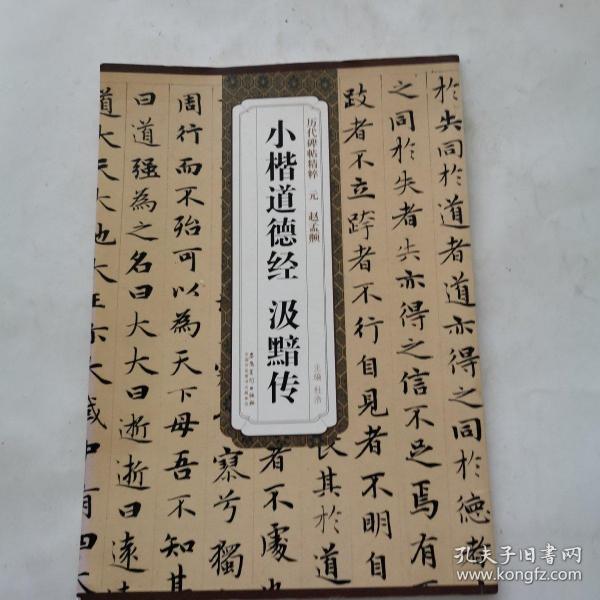 於失同於道者道亦得之同於德者
之同於失者失亦得之信不足焉有
跂者不立跨者不行自見者不明自
長其於道
者不處也
寥兮獨
周行而不殆可以為天下母吾不知其
曰道強為之名曰大大曰逝逝曰遠遠
道大天大地大王亦大域中有四大
历代碑帖精粹 元 赵孟頫
小楷道德经 汲黯传
主编 杜浩
安徽美术出版社
孔夫子旧书网
www.kongfz.com